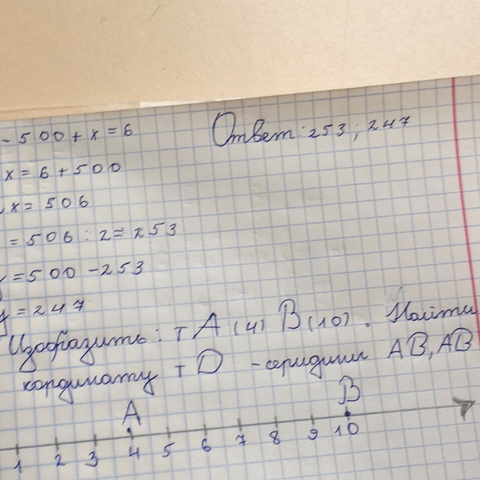 - 500 + x = 6
Ответ: 253; 247
x = 6 + 500
x = 506
= 506 : 2 = 253
y = 500 - 253
y = 247
Изобразить: т A (4) B (10). Найти
кординату т D - середины AB, AB
A B
1 2 3 4 5 6 7 8 9 10